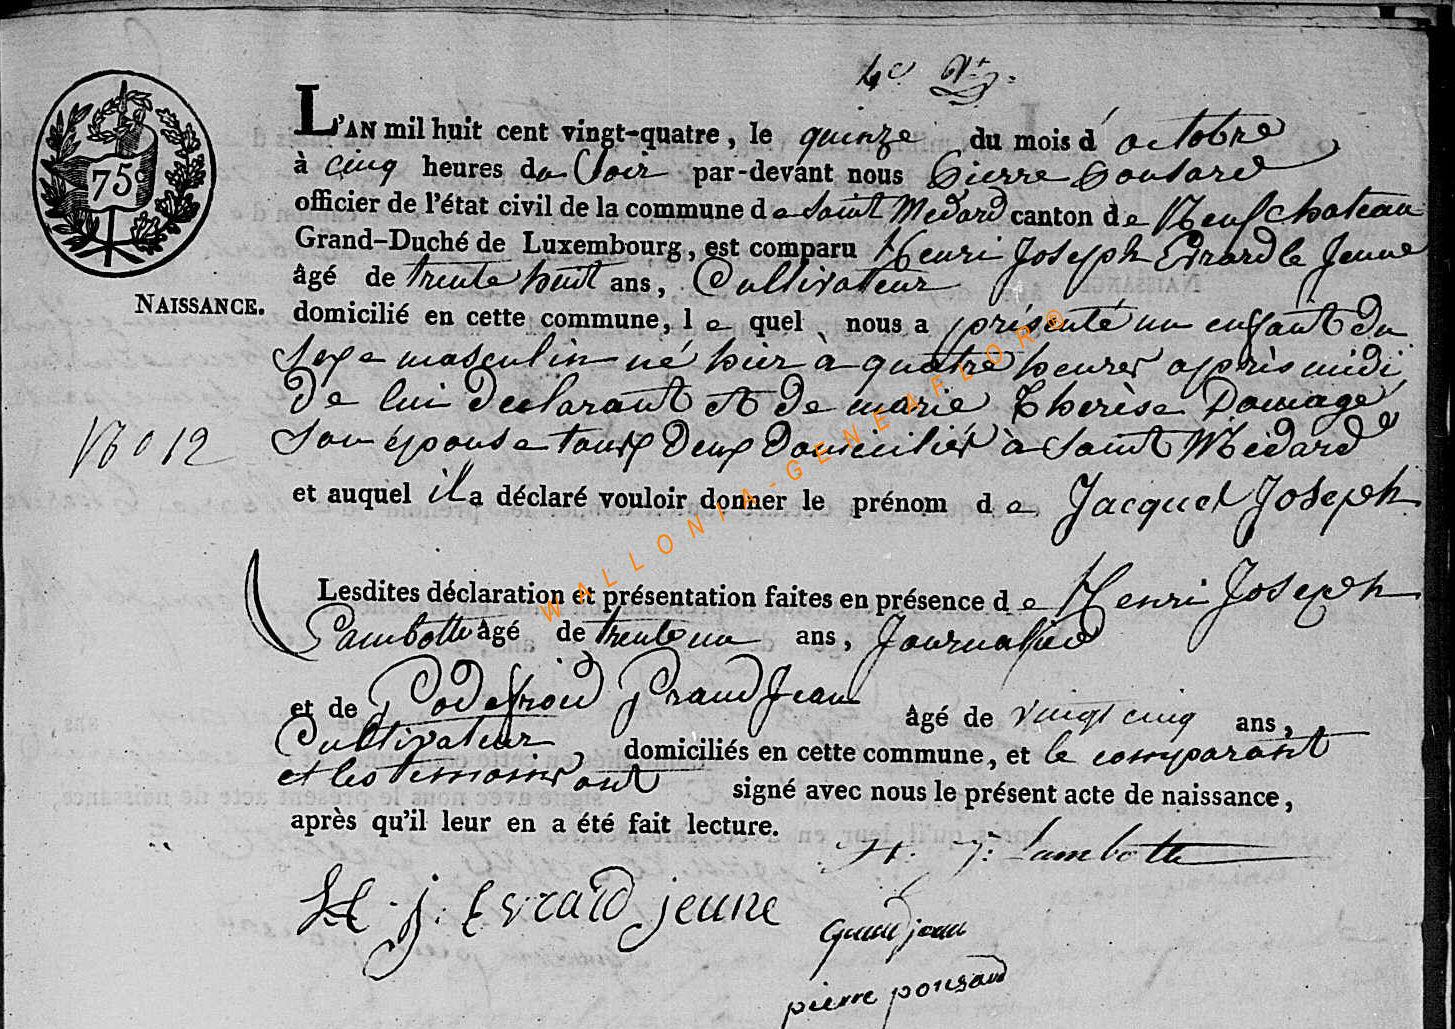 4e
75c
L'AN mil huit cent vingt-quatre, le quinze du mois d'octobre
à cinq heures du Soir par-devant nous Pierre Ponsard
officier de l'état civil de la commune de Saint Médard canton de Neufchateau
Grand-Duché de Luxembourg, est comparu Henri Joseph Evrard le Jeune
âgé de trente huit ans, Cultivateur
NAISSANCE.
domicilié en cette commune, lequel nous a présenté un enfant du
Sexe masculin né hier à quatre heures après midi
De lui Declarant et de marie Thérèse Domage
No 12
Son épouse tous Deux Domiciliés à Saint Médard
et auquel il a déclaré vouloir donner le prénom de Jacques Joseph
Lesdites déclaration et présentation faites en présence de Henri Joseph
Lambotte âgé de trente un ans, Journalier
et de Godefroid Grand Jean âgé de vingt cinq ans,
Cultivateur, domiciliés en cette commune, et le comparant
et les temoins ont signé avec nous le présent acte de naissance,
après qu'il leur en a été fait lecture.
H. J: Lambotte
H. j. Evrard jeune
Grandjean
pierre ponsard
WALLONIA-GENEAFLOR©